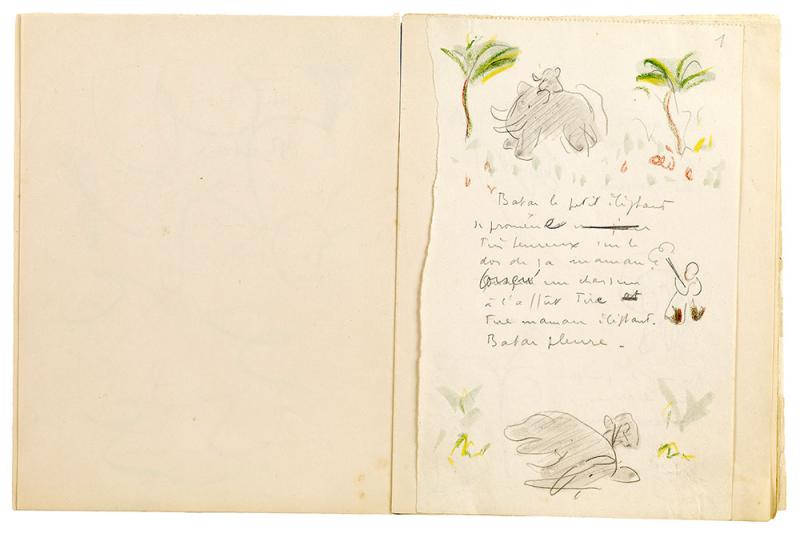 1
Babar le petit éléphant
se promène un jour
très heureux sur le
dos de sa maman.
Lorsqu' un chasseur
à l'affût tire et
tue maman éléphant.
Babar pleure.